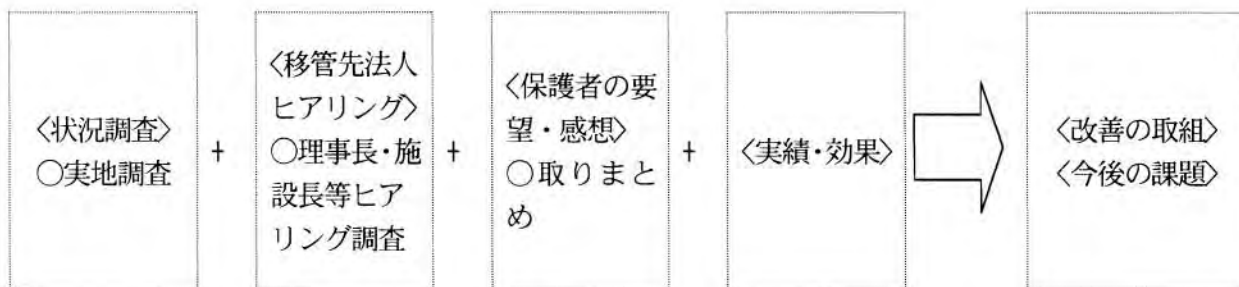 〈状況調査〉
○実地調査
+
〈移管先法人
ヒアリング〉
○理事長・施
設長等ヒア
リング調査
+
〈保護者の要
望・感想〉
○取りまと
め
+
〈実績・効果〉
〈改善の取組〉
〈今後の課題〉